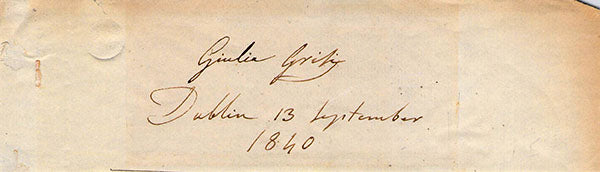 Giulia Grisi
Dublin 13 September
1840